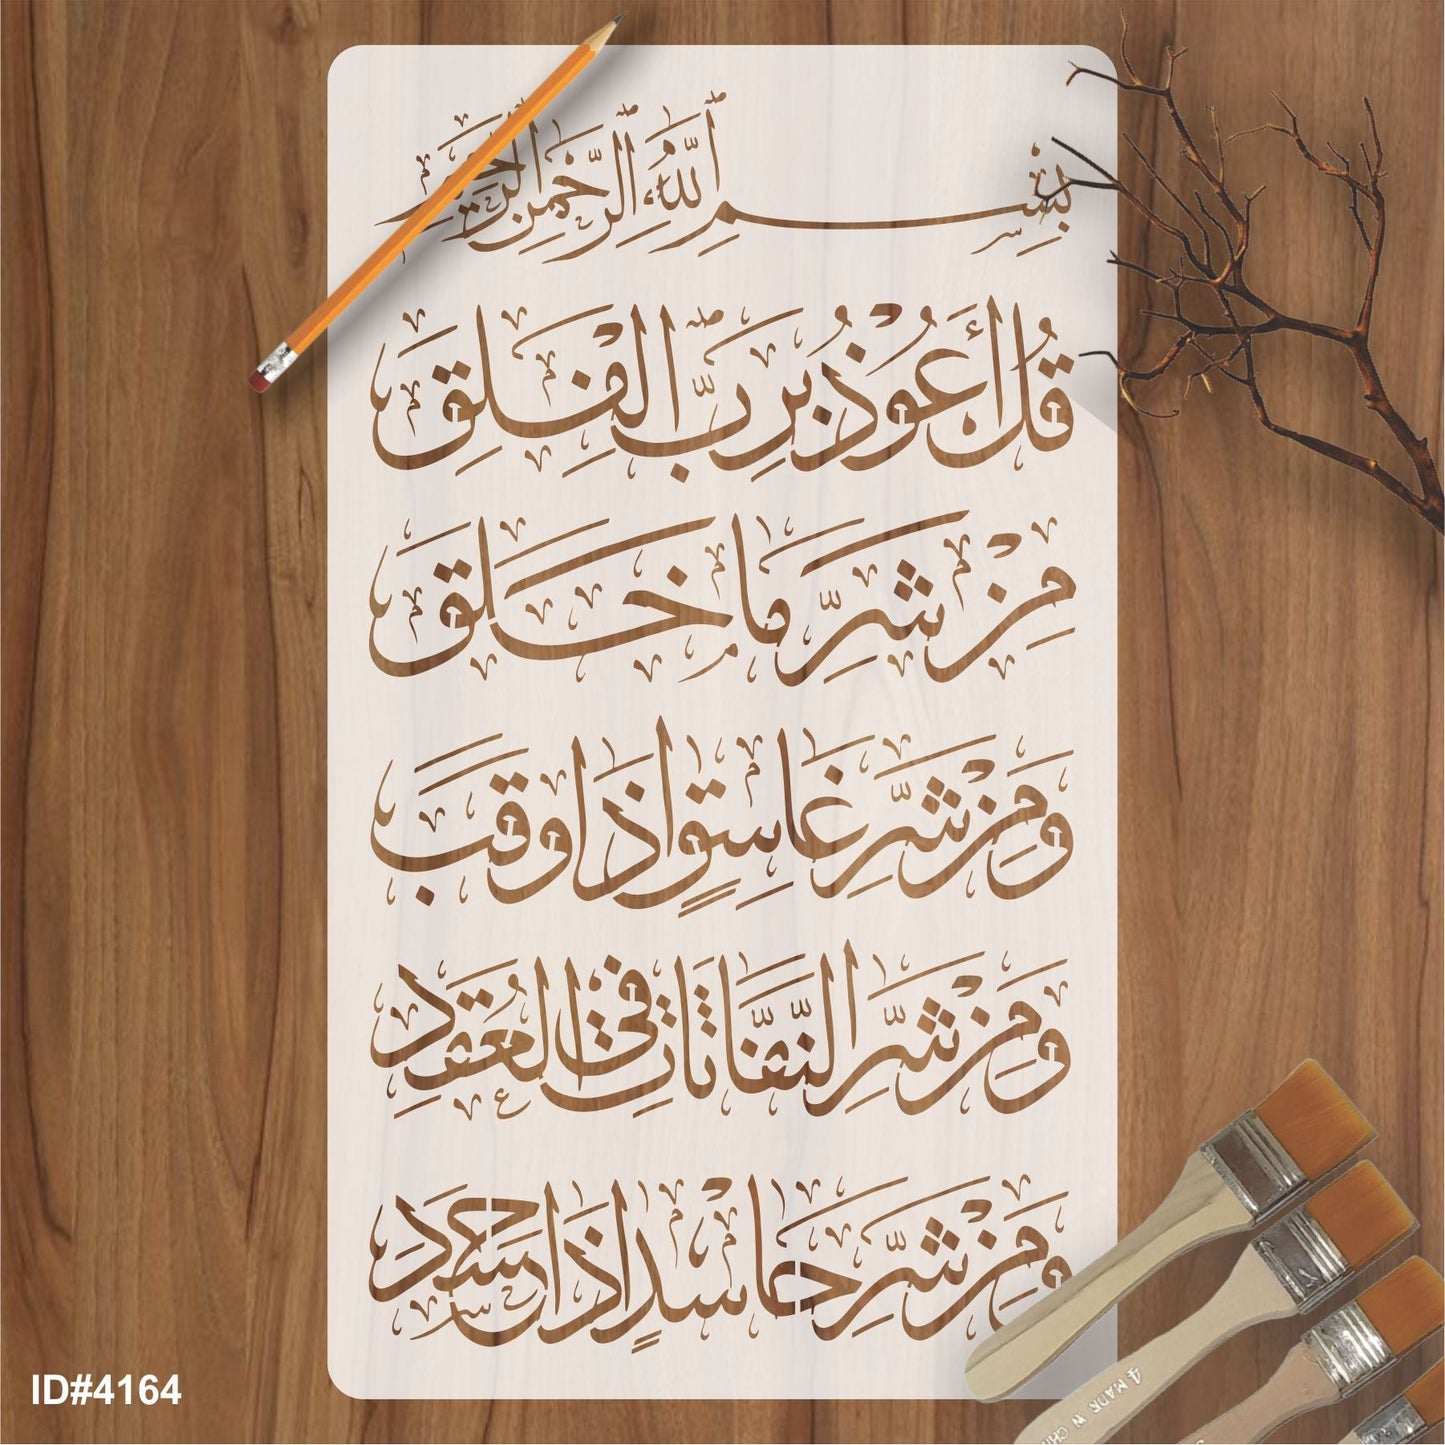 بِسْمِ اللَّهِ الرَّحْمَنِ الرَّحِيمِ
قُلْ أَعُوْذُ بِرَبِّ الْفَلَقِ
مِنْ شَرِّ مَا خَلَقَ
وَمِنْ شَرِّ غَاسِقٍ إِذَا وَقَبَ
وَمِنْ شَرِّ النَّفَّاثَاتِ فِي الْعُقَدِ
وَمِنْ شَرِّ حَاسِدٍ إِذَا حَسَدَ
ID#4164
4 MADE IN CHI